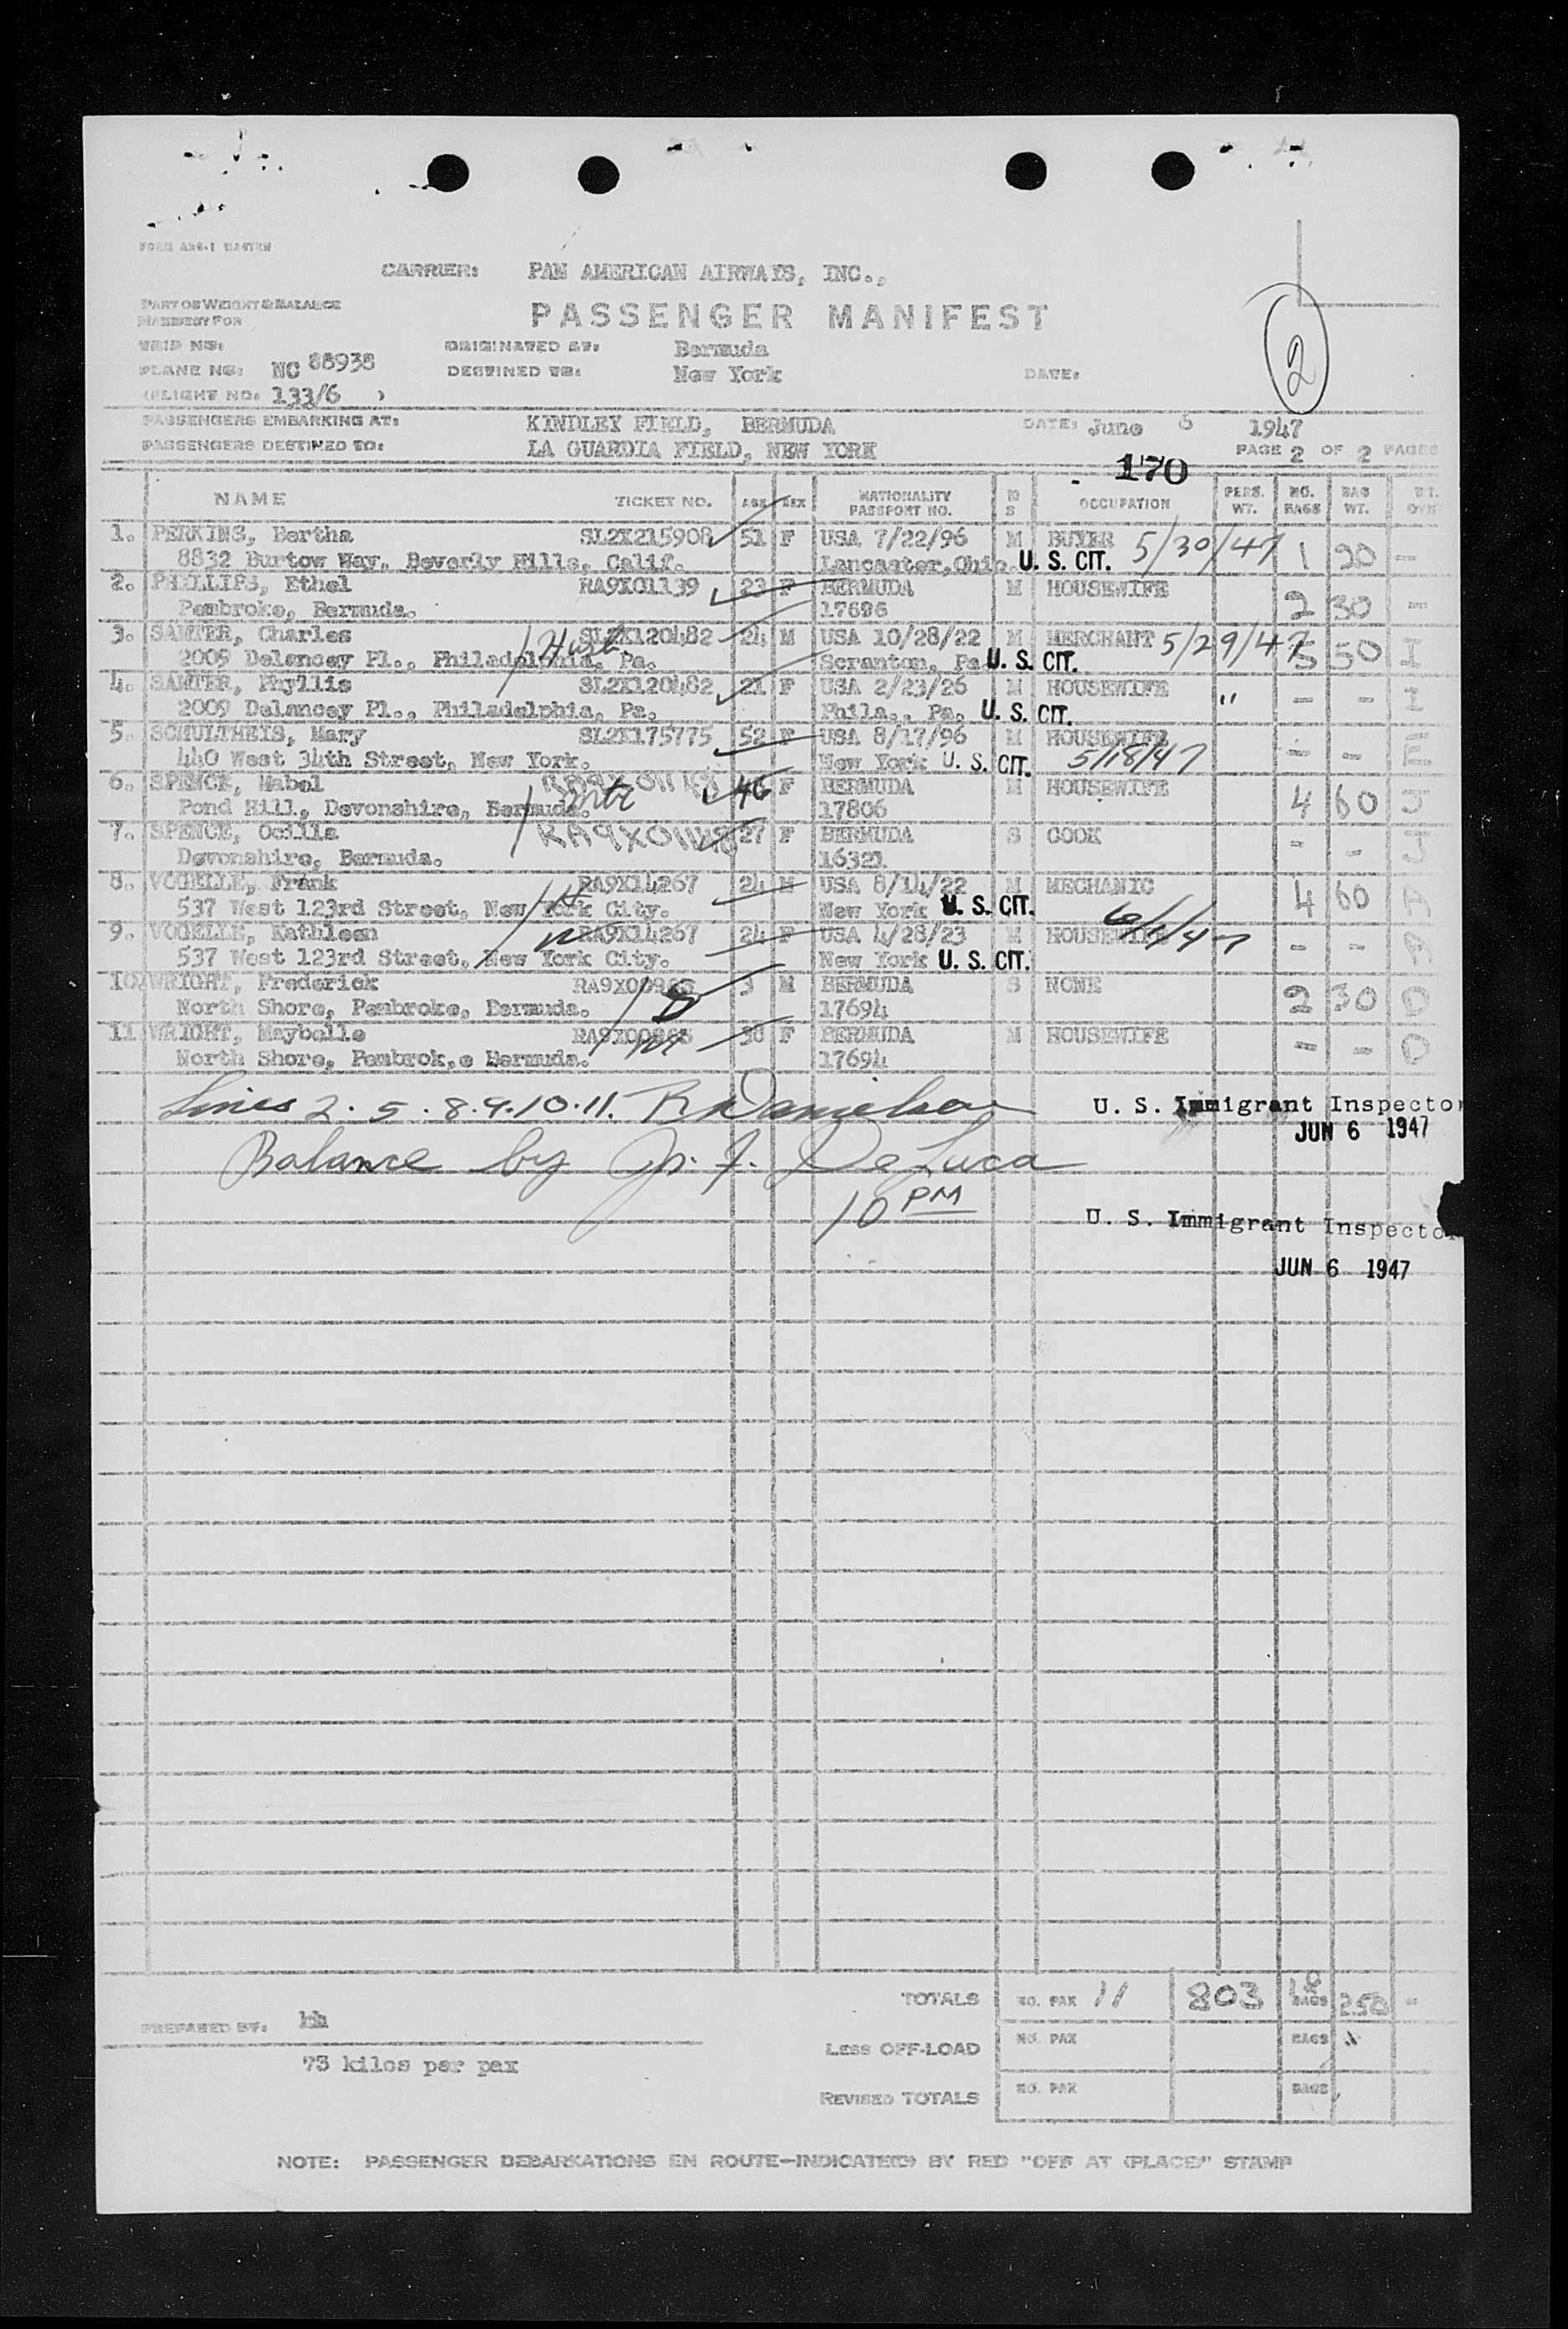 FORM ANS-1 EASTERN
CARRIER: PAN AMERICAN AIRWAYS, INC.,
PART OF WEIGHT & BALANCE
MANIFEST FOR
PASSENGER MANIFEST
TRIP NO:
ORIGINATED AT: Bermuda
PLANE NO: NC 88938
DESTINED TO: New York
DATE:
2
(FLIGHT NO. 133/6 )
PASSENGERS EMBARKING AT: KINDLEY FIELD, BERMUDA
DATE: June 6 1947
PASSENGERS DESTINED TO: LA GUARDIA FIELD, NEW YORK
PAGE 2 OF 2 PAGES
170
NAME TICKET NO. AGE SEX NATIONALITY PASSPORT NO. M S OCCUPATION PERS. WT. NO. BAGS BAG WT. WT.
1. PERKINS, Bertha SL2X215908 51 F USA 7/22/96 M BUYER 5/30/47 1
8832 Burtow Way, Beverly Hills, Calif. Lancaster, Ohio U. S. CIT.
2. PHILLIPS, Ethel RA9X01139 23 F BERMUDA M HOUSEWIFE 2 30 -
Pembroke, Bermuda. 17686
3. SAMTER, Charles SL2X120482 24 M USA 10/28/22 M MERCHANT 5/29/47 5 50 I
2009 Delancey Pl., Philadelphia, Pa. Scranton, Pa. U. S. CIT.
4. SAMTER, Phyllis SL2X120482 21 F USA 2/23/26 M HOUSEWIFE " - - I
2009 Delancey Pl., Philadelphia, Pa. Phila., Pa. U. S. CIT.
5. SCHULTHEIS, Mary SL2X175775 52 F USA 8/17/96 M HOUSEWIFE - - E
440 West 34th Street, New York. New York U. S. CIT. 5/18/47
6. SPENCE, Mabel 46 F BERMUDA M HOUSEWIFE 4 60 J
Pond Hill, Devonshire, Bermuda. 17806
7. SPENCE, RA9X01148 27 F BERMUDA S COOK - - J
Devonshire, Bermuda. 16321
8. VOGELLE, Frank RA9X14267 24 M USA 8/14/22 M MECHANIC 4 60 A
537 West 123rd Street, New York City. H New York U. S. CIT.
9. VOGELLE, Kathleen RA9X14267 24 F USA 4/28/23 M HOUSEWIFE 6/1/47 - - A
537 West 123rd Street, New York City. New York U. S. CIT.
10. WRIGHT, Frederick 3 M BERMUDA S NONE 2 30 D
North Shore, Pembroke, Bermuda. 17694
11. WRIGHT, Maybelle 30 F BERMUDA M HOUSEWIFE - - D
North Shore, Pembrok,e Bermuda. 17694
Lines 2. 5. 8. 9. 10. 11. R Danielson U. S. Immigrant Inspector
JUN 6 1947
Balance by De Luca
10 PM
U. S. Immigrant Inspector
JUN 6 1947
TOTALS NO. PAX 11 803 BAGS 250 -
PREPARED BY: hh
LESS OFF-LOAD NO. PAX BAGS
73 kilos per pax
REVISED TOTALS NO. PAX BAGS
NOTE: PASSENGER DEBARKATIONS EN ROUTE—INDICATE(D) BY RED "OFF AT (PLACE)" STAMP